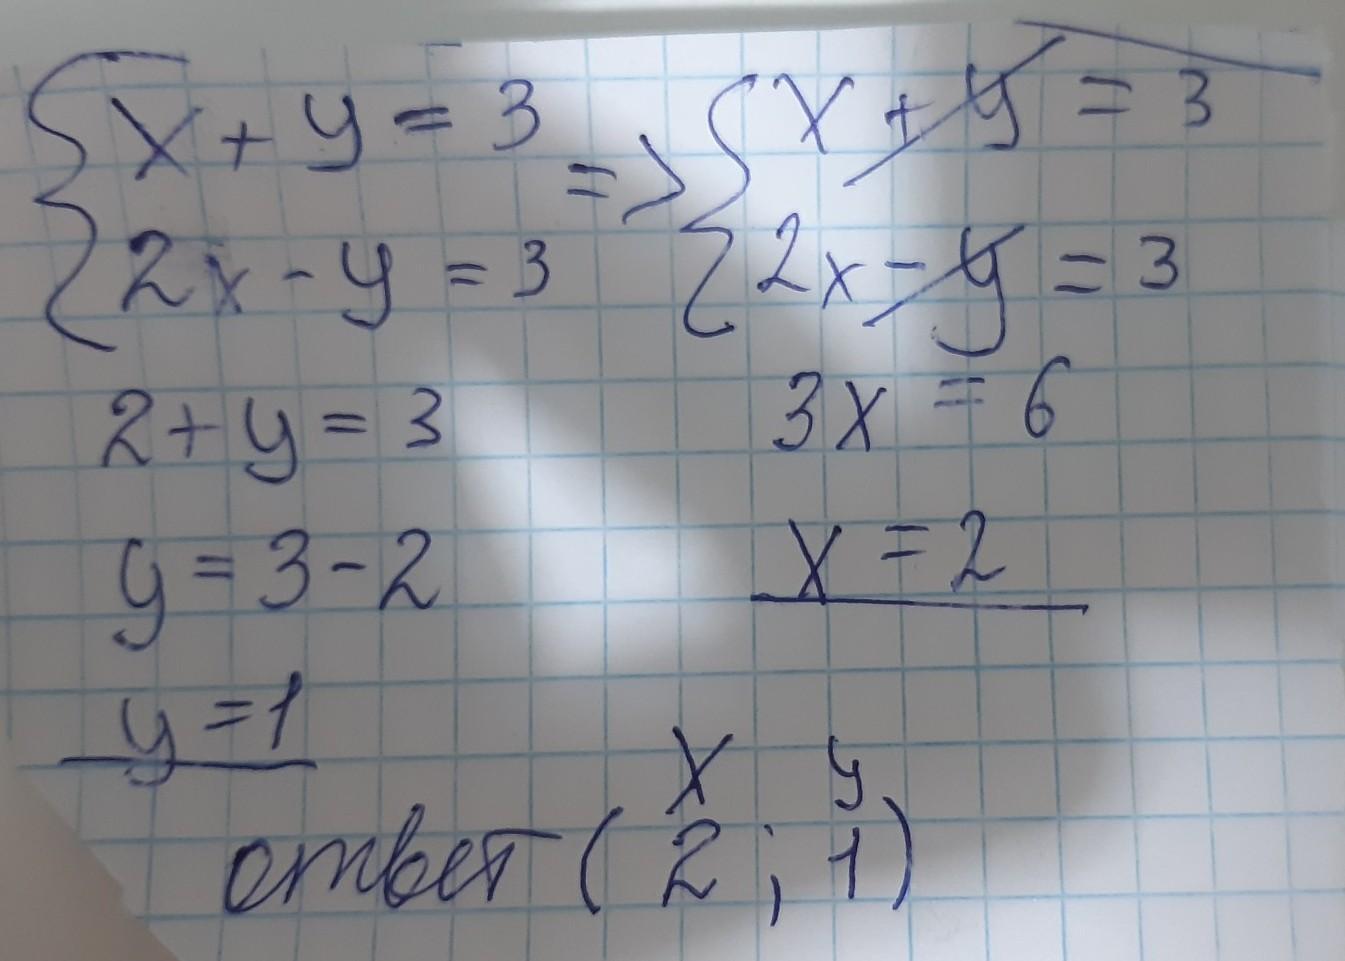 x + y = 3 => x + y = 3
2x - y = 3 2x - y = 3
2 + y = 3 3x = 6
y = 3 - 2 x = 2
y = 1
x y
ответ ( 2 ; 1 )